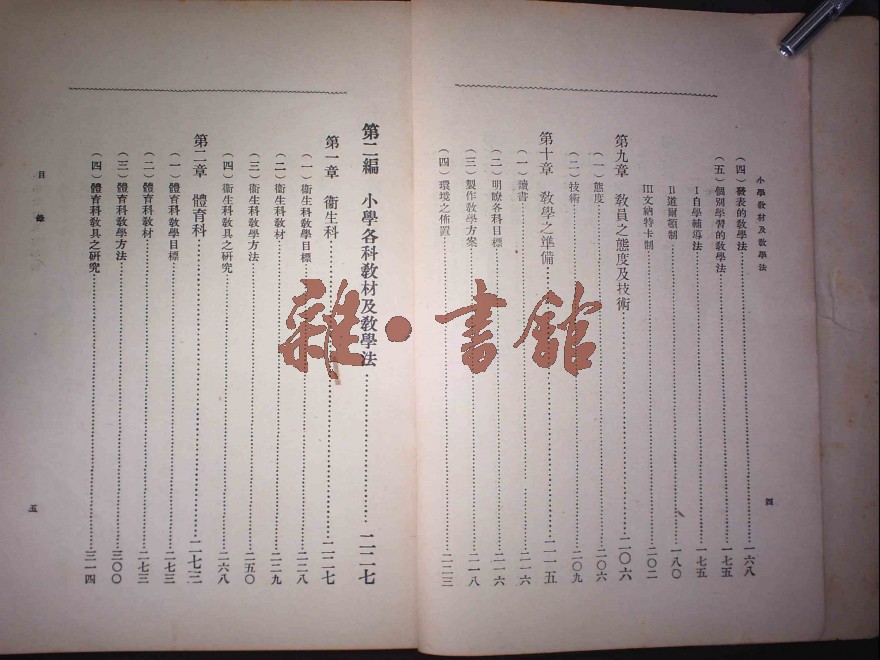 小學教材及教學法
四
（四）發表的教學法……一六八
（五）個別學習的教學法……一七五
I 自學輔導法……一七五
II 道爾頓制……一八〇
III 文納特卡制……二〇二
第九章　教員之態度及技術……二〇六
（一）態度……二〇六
（二）技術……二〇九
第十章　教學之準備……二一五
（一）讀書……二一六
（二）明瞭各科目標……二一六
（三）製作教學方案……二一八
（四）環境之佈置……二二三
第二編　小學各科教材及教學法……二二七
第一章　衞生科……二二七
（一）衞生科教學目標……二二八
（二）衞生科教材……二二九
（三）衞生科教學方法……二五〇
（四）衞生科教具之研究……二六八
第二章　體育科……二七三
（一）體育科教學目標……二七三
（二）體育科教材……二七三
（三）體育科教學方法……三〇〇
（四）體育科教具之研究……三一四
目錄
五
雜・書館